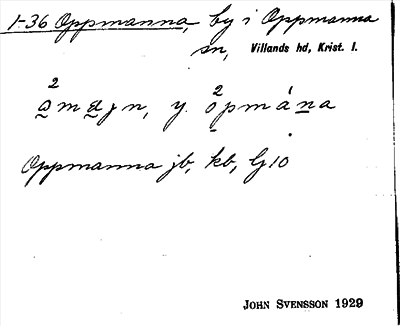 1-36 Oppmanna, by i Oppmanna
sn, Villands hd, Krist. l.
y. opmána
Oppmanna jb, kb, Gj 10
JOHN SVENSSON 1929